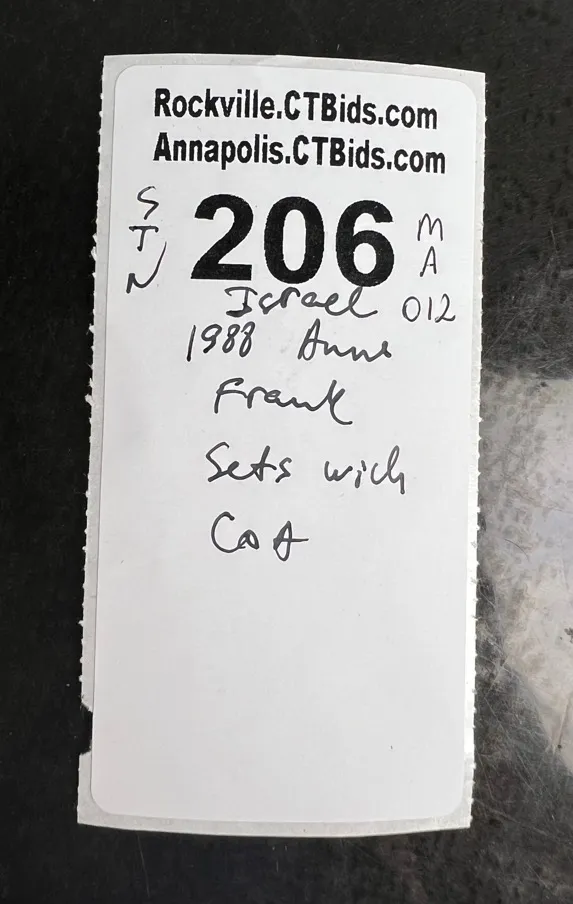 Rockville.CTBids.com
Annapolis.CTBids.com
STN 206 MA
Israel 012
1988 Anne
Frank
Sets with
CoA